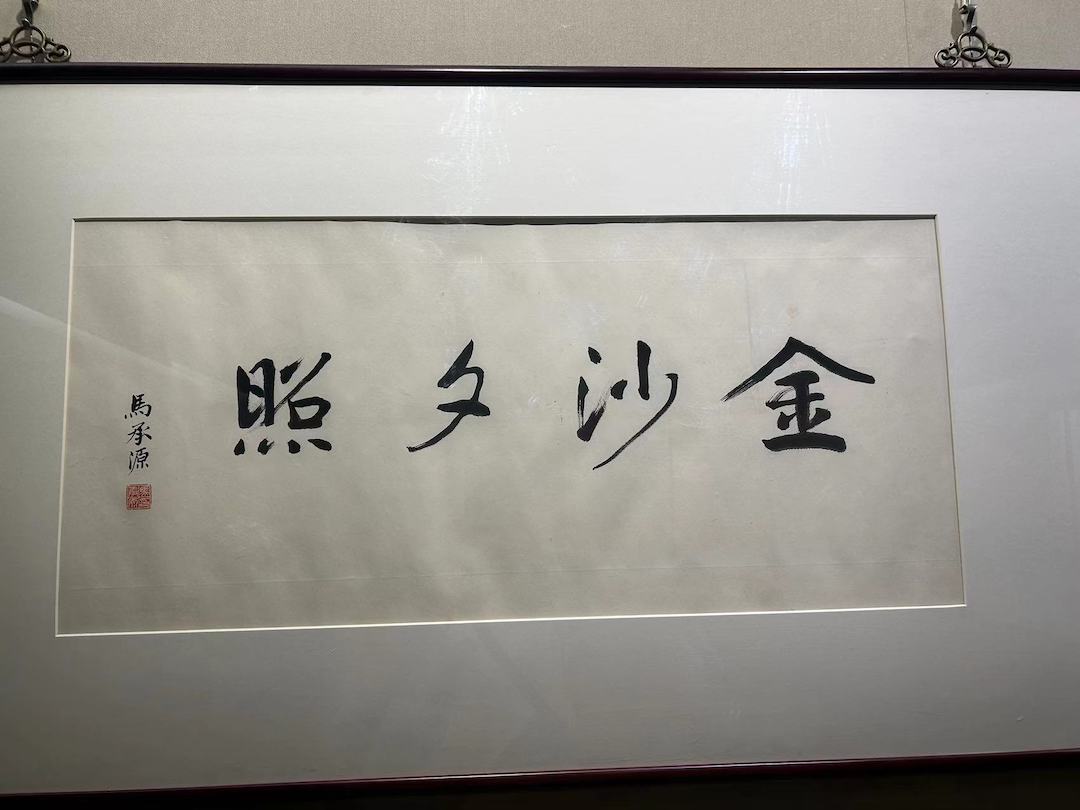 金沙夕照
馬承源